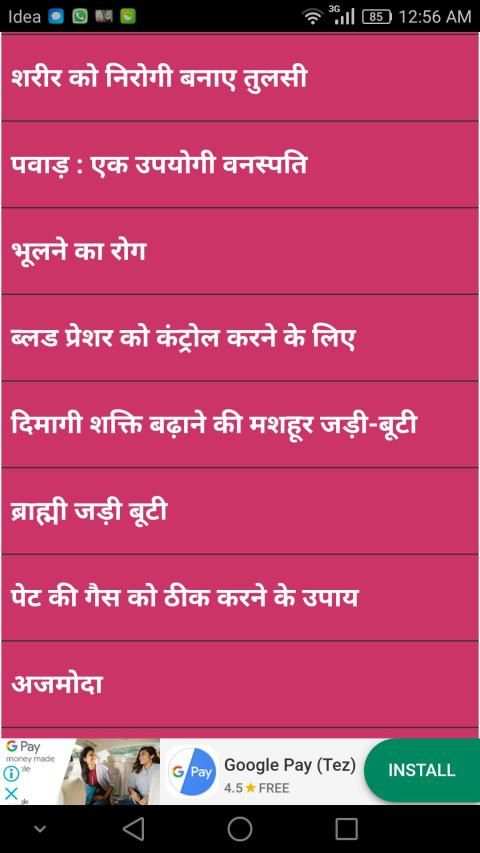 Idea 3G 85 12:56 AM
शरीर को निरोगी बनाए तुलसी
पवाड़ : एक उपयोगी वनस्पति
भूलने का रोग
ब्लड प्रेशर को कंट्रोल करने के लिए
दिमागी शक्ति बढ़ाने की मशहूर जड़ी-बूटी
ब्राह्मी जड़ी बूटी
पेट की गैस को ठीक करने के उपाय
अजमोदा
G Pay
money made
G Pay
Google Pay (Tez)
4.5★ FREE
INSTALL